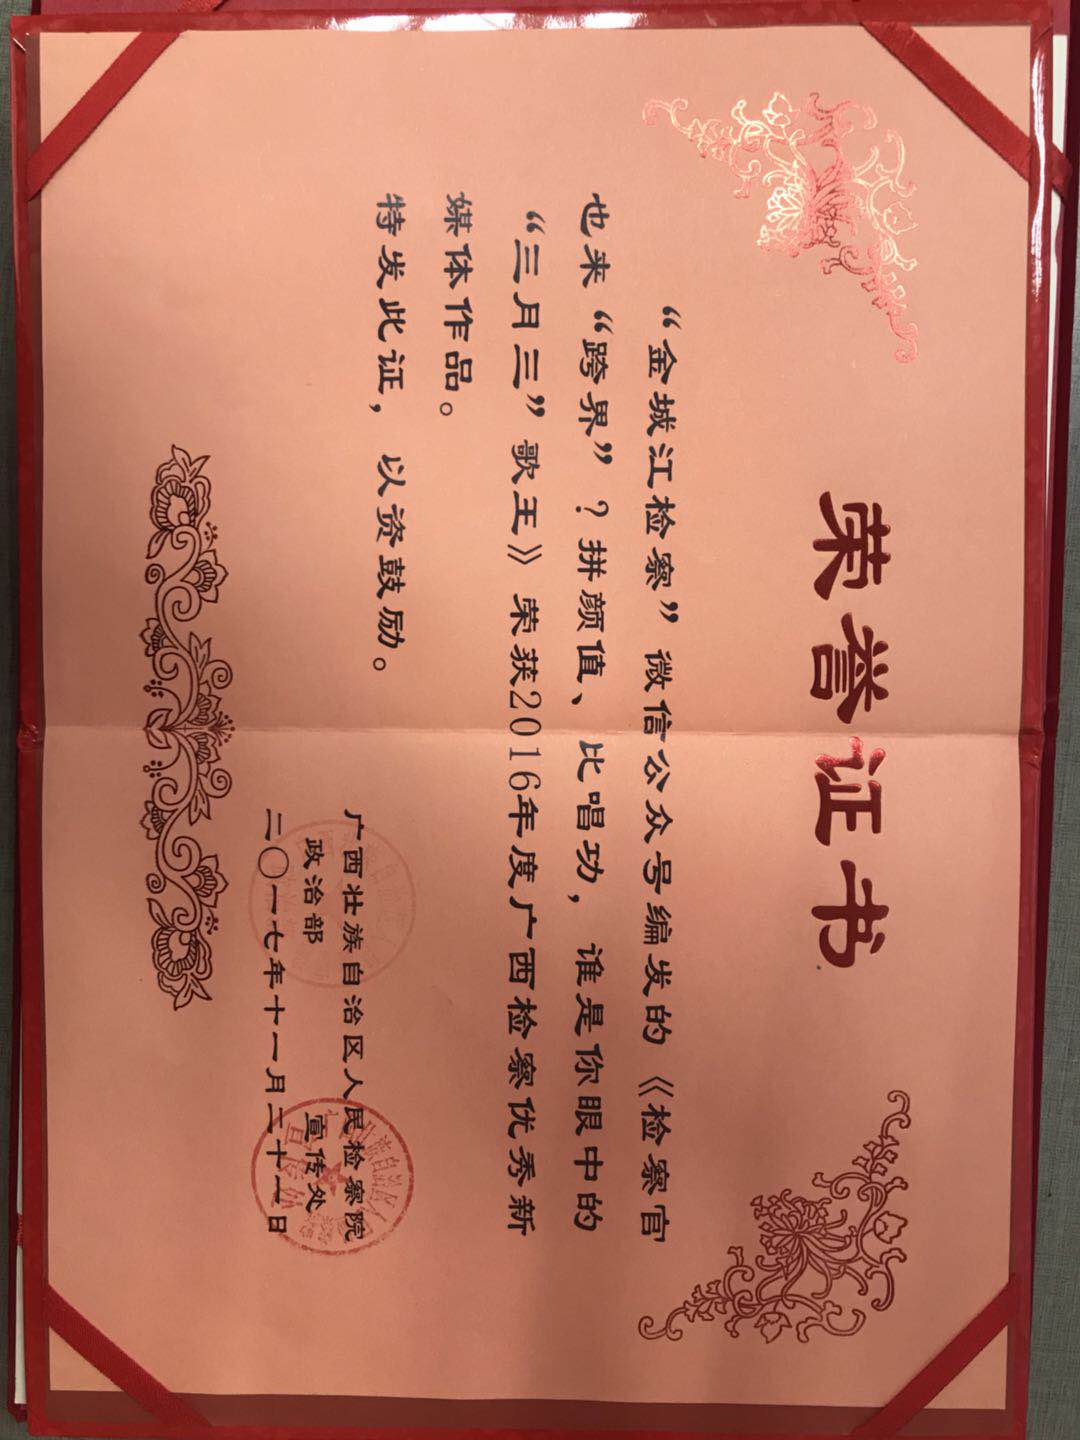 荣誉证书
“金城江检察”微信公众号编发的《检察官
也来“跨界”？拼颜值、比唱功，谁是你眼中的
“三月三”歌王》荣获2016年度广西检察优秀新
媒体作品。
特发此证，以资鼓励。
广西壮族自治区人民检察院
政治部 宣传处
二〇一七年十一月二十一日